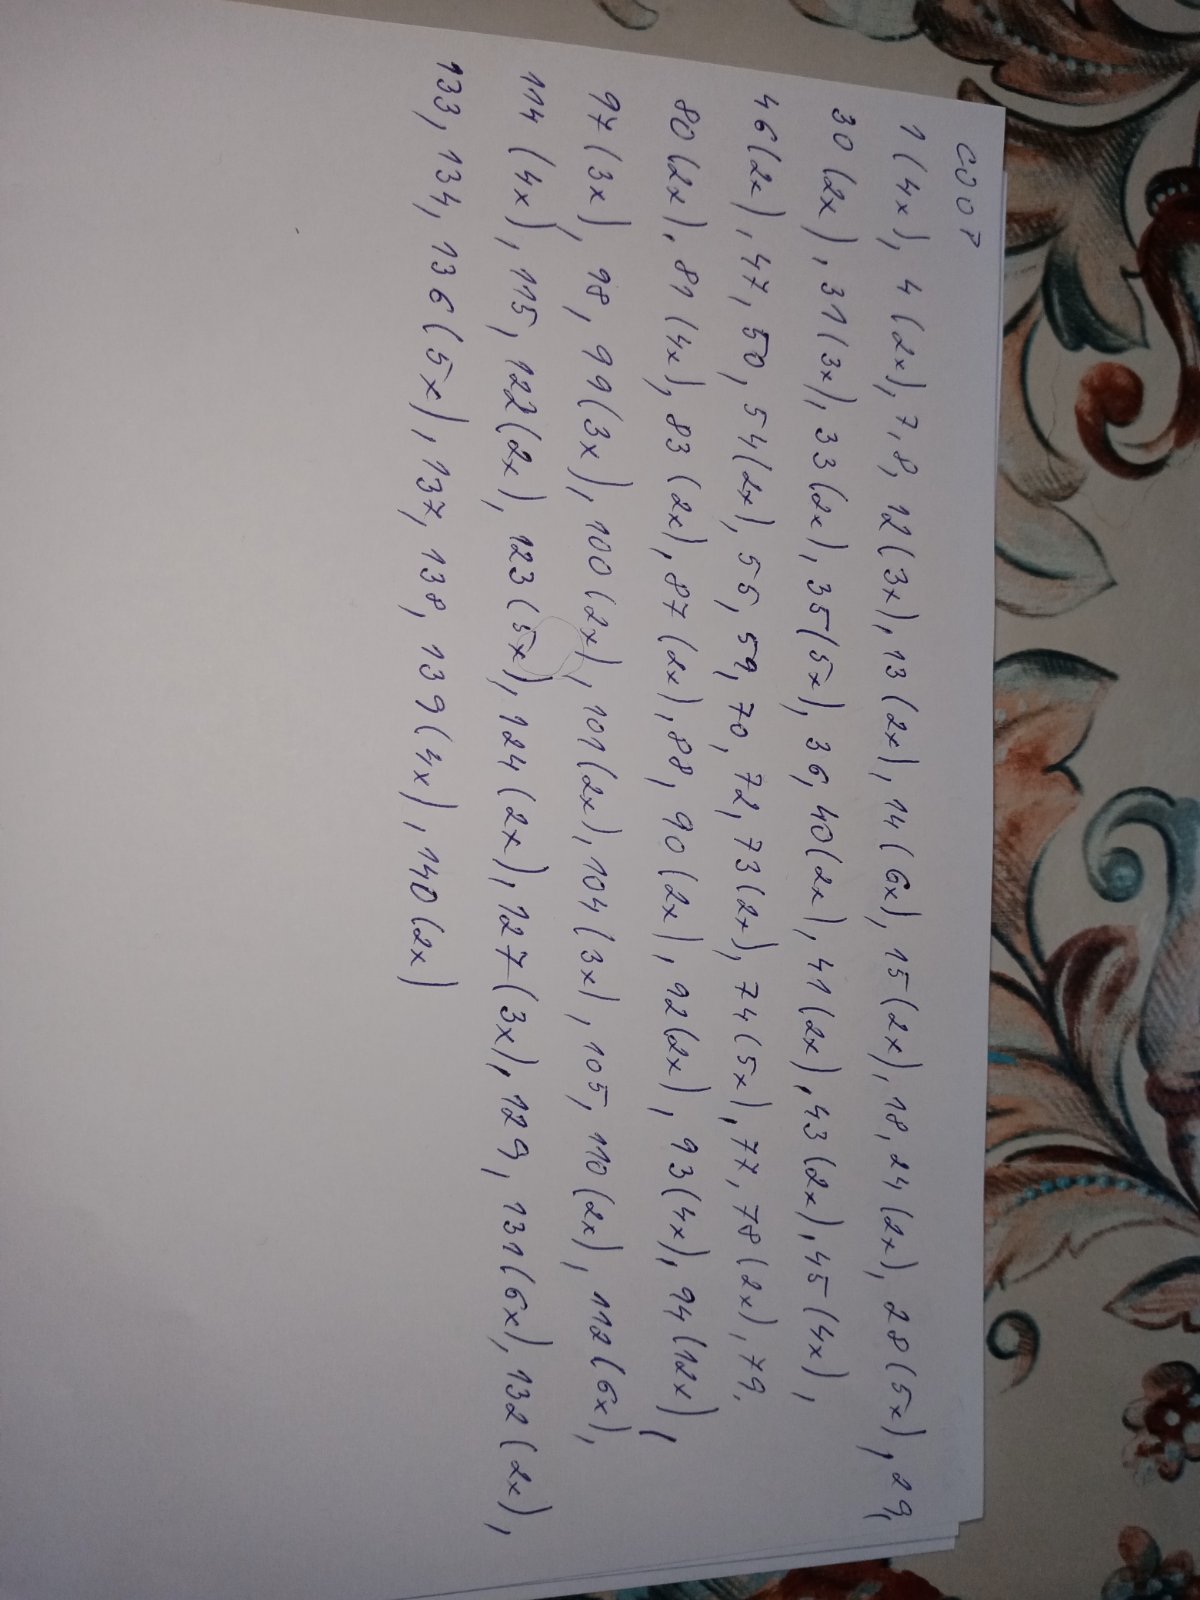 COOP
1 (4x), 4 (2x), 7, 8, 12 (3x), 13 (2x), 14 (6x), 15 (2x), 18, 24 (2x), 28 (5x), 29,
30 (2x), 31 (3x), 33 (2x), 35 (5x), 36, 40 (2x), 41 (2x), 43 (2x), 45 (4x),
46 (2x), 47, 50, 54 (2x), 55, 59, 70, 72, 73 (2x), 74 (5x), 77, 78 (2x), 79,
80 (2x), 81 (4x), 83 (2x), 87 (2x), 88, 90 (2x), 92 (2x), 93 (4x), 94 (12x),
97 (3x), 98, 99 (3x), 100 (2x), 101 (2x), 104 (3x), 105, 110 (2x), 112 (6x),
114 (4x), 115, 122 (2x), 123 (5x), 124 (2x), 127 (3x), 129, 131 (6x), 132 (2x),
133, 134, 136 (5x), 137, 138, 139 (4x), 140 (2x)